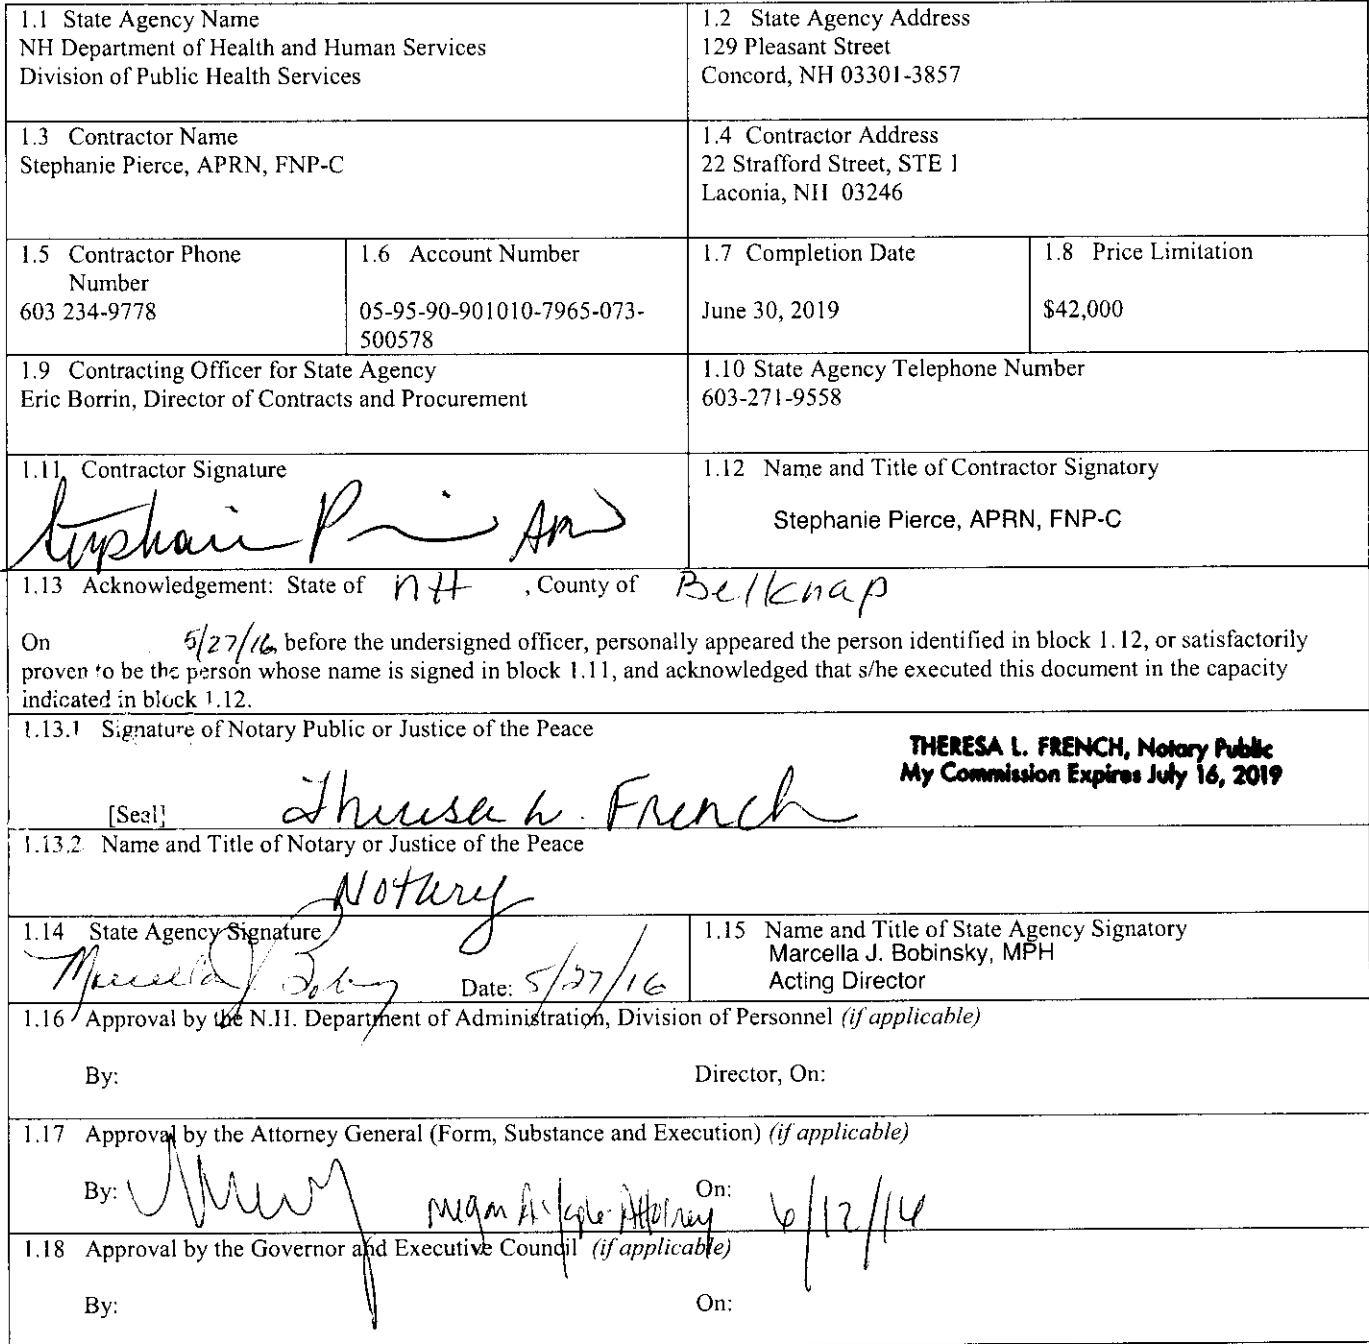 1.1 State Agency Name
NH Department of Health and Human Services
Division of Public Health Services
1.2 State Agency Address
129 Pleasant Street
Concord, NH 03301-3857
1.3 Contractor Name
Stephanie Pierce, APRN, FNP-C
1.4 Contractor Address
22 Strafford Street, STE 1
Laconia, NH 03246
1.5 Contractor Phone
Number
603 234-9778
1.6 Account Number
05-95-90-901010-7965-073-
500578
1.7 Completion Date
June 30, 2019
1.8 Price Limitation
$42,000
1.9 Contracting Officer for State Agency
Eric Borrin, Director of Contracts and Procurement
1.10 State Agency Telephone Number
603-271-9558
1.11 Contractor Signature
Stephanie
1.12 Name and Title of Contractor Signatory
Stephanie Pierce, APRN, FNP-C
1.13 Acknowledgement: State of NH , County of Belknap
On 5/27/16, before the undersigned officer, personally appeared the person identified in block 1.12, or satisfactorily
proven to be the person whose name is signed in block 1.11, and acknowledged that s/he executed this document in the capacity
indicated in block 1.12.
1.13.1 Signature of Notary Public or Justice of the Peace
THERESA L. FRENCH, Notary Public
My Commission Expires July 16, 2019
[Seal] Theresa L. French
1.13.2 Name and Title of Notary or Justice of the Peace
Notary
1.14 State Agency Signature
Marcella J. Bobinsky Date: 5/27/16
1.15 Name and Title of State Agency Signatory
Marcella J. Bobinsky, MPH
Acting Director
1.16 Approval by the N.H. Department of Administration, Division of Personnel (if applicable)
By: Director, On:
1.17 Approval by the Attorney General (Form, Substance and Execution) (if applicable)
By: Megan Attorney On: 6/12/16
1.18 Approval by the Governor and Executive Council (if applicable)
By: On: